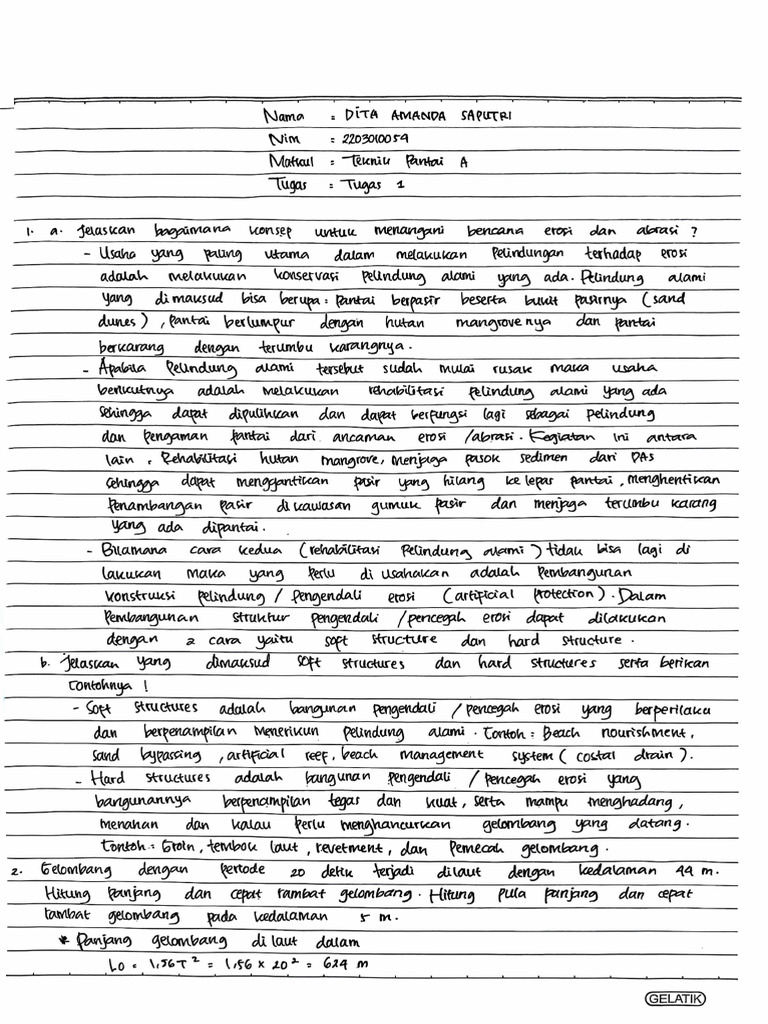 Nama : DITA AMANDA SAPUTRI
Nim : 2203010054
Matkul : Teknik Pantai A
Tugas : Tugas 1
1. a. Jelaskan bagaimana konsep untuk menangani bencana erosi dan abrasi ?
- Usaha yang paling utama dalam melakukan Pelindungan terhadap erosi
adalah melakukan konservasi pelindung alami yang ada. Pelindung alami
yang dimaksud bisa berupa : pantai berpasir beserta bukit pasirnya (sand
dunes), pantai berlumpur dengan hutan mangrovenya dan pantai
berkarang dengan terumbu karangnya.
- Apabila Pelindung alami tersebut sudah mulai rusak maka usaha
berikutnya adalah melakukan rehabilitasi pelindung alami yang ada
sehingga dapat dipulihkan dan dapat berfungsi lagi sebagai pelindung
dan pengaman pantai dari ancaman erosi /abrasi. Kegiatan ini antara
lain : Rehabilitasi hutan mangrove, menjaga pasok sedimen dari DAS
sehingga dapat menggantikan pasir yang hilang ke lepas pantai, menghentikan
penambangan pasir di kawasan gumuk pasir dan menjaga terumbu karang
yang ada dipantai.
- Bilamana cara kedua (rehabilitasi pelindung alami) tidak bisa lagi di
lakukan maka yang perlu di usahakan adalah pembangunan
konstruksi pelindung / pengendali erosi (artificial protection). Dalam
pembangunan struktur pengendali /pencegah erosi dapat dilakukan
dengan 2 cara yaitu soft structure dan hard structure.
b. Jelaskan yang dimaksud soft structures dan hard structures serta berikan
contohnya !
- Soft structures adalah bangunan pengendali /pencegah erosi yang berperilaku
dan berpenampilan menirukun pelindung alami. Contoh : Beach nourishment,
sand bypassing, artificial reef, beach management system (costal drain).
- Hard structures adalah bangunan pengendali /pencegah erosi yang
bangunannya berpenampilan tegas dan kuat, serta mampu menghadang,
menahan dan kalau perlu menghancurkan gelombang yang datang.
Contoh : Groin, tembok laut, revetment, dan pemecah gelombang.
2. Gelombang dengan periode 20 detik terjadi dilaut dengan kedalaman 44 m.
Hitung panjang dan cepat rambat gelombang. Hitung pula panjang dan cepat
rambat gelombang pada kedalaman 5 m.
* Panjang gelombang di laut dalam
Lo = 1,56T² = 1,56 × 20² = 624 m
GELATIK